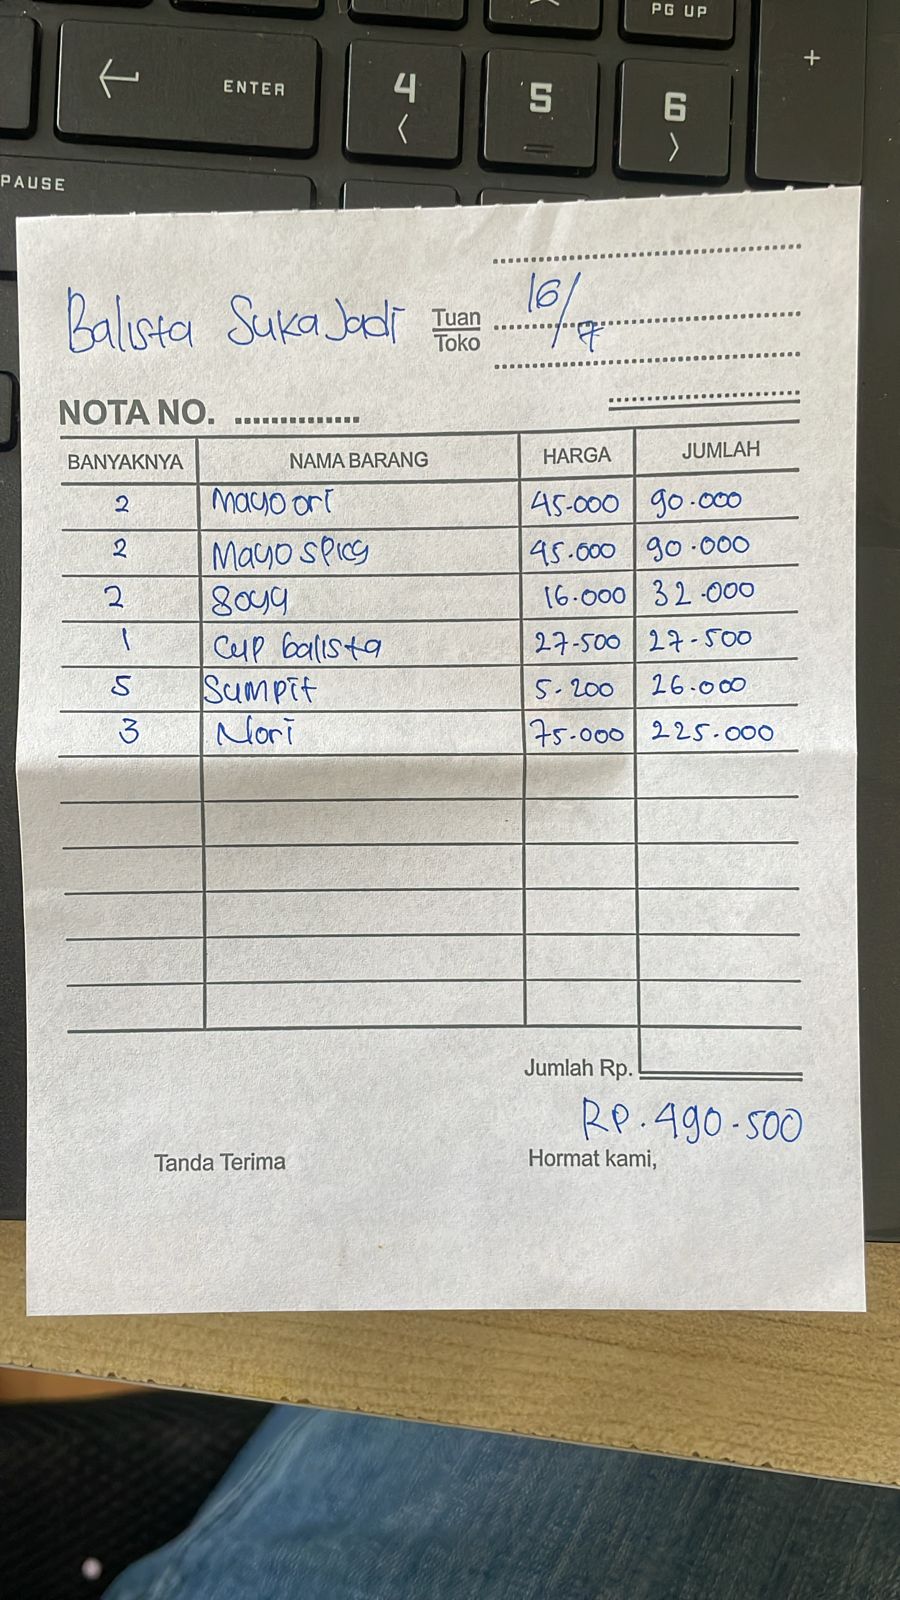 PG UP
+
ENTER
4
5
6
PAUSE
Balista SukaJadi
Tuan
Toko
16/7
NOTA NO. ..............
BANYAKNYA NAMA BARANG HARGA JUMLAH
2 Mayo ori 45.000 90.000
2 Mayo spicy 45.000 90.000
2 Soya 16.000 32.000
1 Cup balista 27.500 27.500
5 Sumpit 5.200 26.000
3 Nori 75.000 225.000
Jumlah Rp.
RP. 490.500
Tanda Terima Hormat kami,